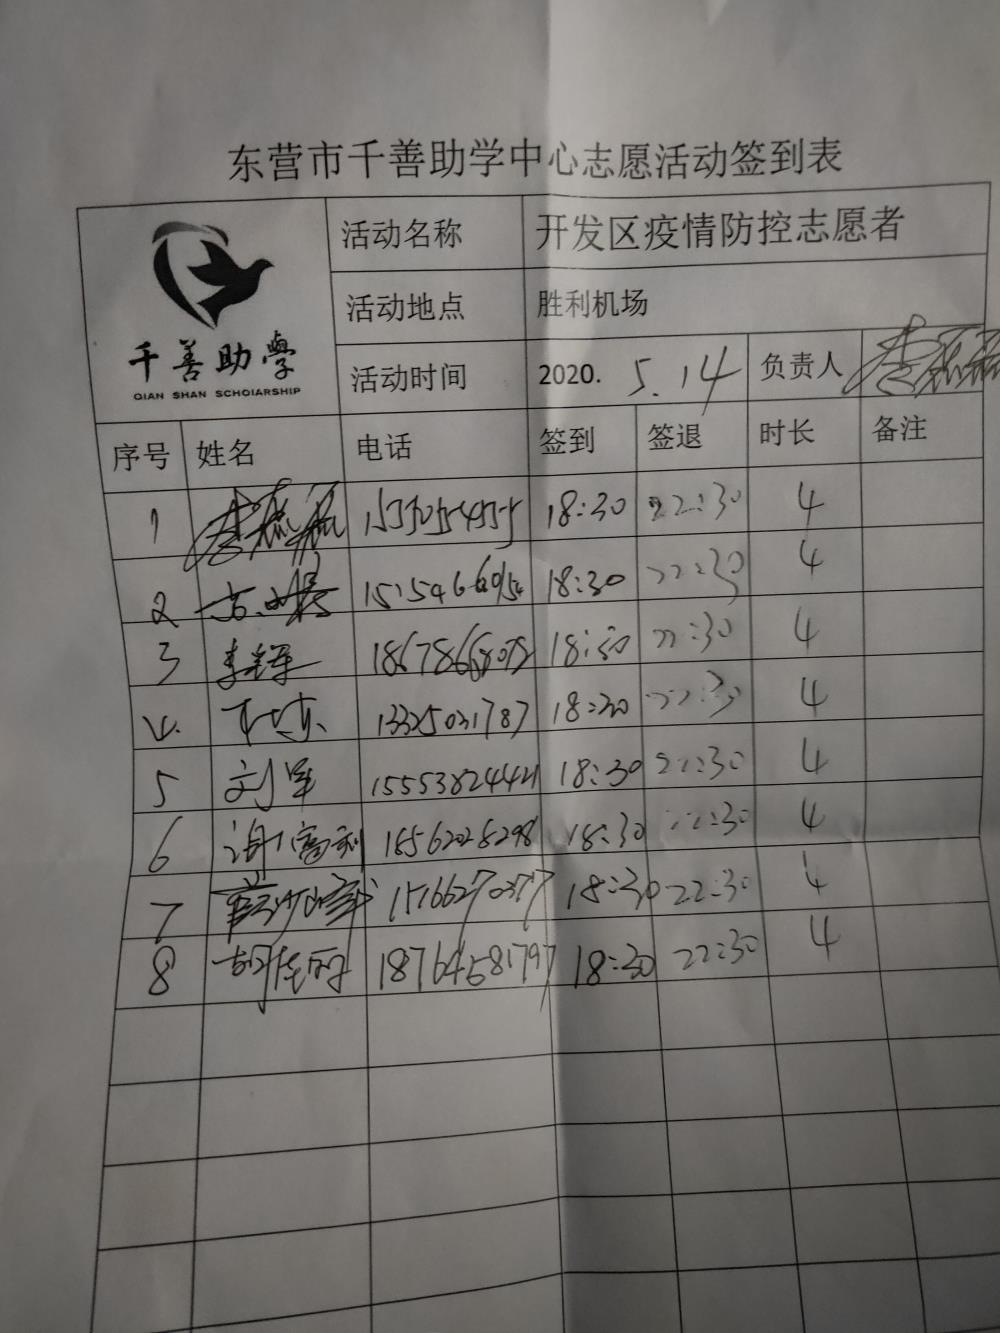 东营市千善助学中心志愿活动签到表
千善助學
QIAN SHAN SCHOIARSHIP
活动名称 开发区疫情防控志愿者
活动地点 胜利机场
活动时间 2020. 5.14 负责人
序号 姓名 电话 签到 签退 时长 备注
1 18:30 22:30 4
2 18:30 22:30 4
3 李军 18:30 22:30 4
4. 13325031787 18:30 22:30 4
5 刘军 15553824421 18:30 22:30 4
6 谢富利 18562028298 18:30 22:30 4
7 18:30 22:30 4
8 胡佳丽 18764581797 18:30 22:30 4